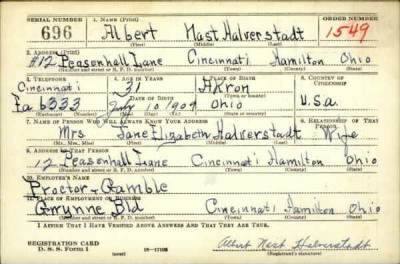 SERIAL NUMBER 1. NAME (Print) ORDER NUMBER
696 Albert Mast Halverstadt 1549
(First) (Middle) (Last)
2. ADDRESS (Print)
#12 Peasenhall Lane Cincinnati Hamilton Ohio
(Number and street or R. F. D. number) (Town) (County) (State)
3. TELEPHONE 4. AGE IN YEARS 5. PLACE OF BIRTH 6. COUNTRY OF CITIZENSHIP
Cincinnati 31 Akron
DATE OF BIRTH (Town or county)
Ea 6333 July 10 1909 Ohio U.S.a.
(Exchange) (Number) (Mo.) (Day) (Yr.) (State or country)
7. NAME OF PERSON WHO WILL ALWAYS KNOW YOUR ADDRESS 8. RELATIONSHIP OF THAT PERSON
Mrs Jane Elizabeth Halverstadt Wife
(Mr., Mrs., Miss) (First) (Middle) (Last)
9. ADDRESS OF THAT PERSON
12 Peasenhall Lane Cincinnati Hamilton Ohio
(Number and street or R. F. D. number) (Town) (County) (State)
10. EMPLOYER'S NAME
Proctor & Gamble
11. PLACE OF EMPLOYMENT OR BUSINESS
Gwynne Bld Cincinnati Hamilton Ohio
(Number and street or R. F. D. number) (Town) (County) (State)
I AFFIRM THAT I HAVE VERIFIED ABOVE ANSWERS AND THAT THEY ARE TRUE.
REGISTRATION CARD
D. S. S. Form 1 (over) Albert Mast Halverstadt